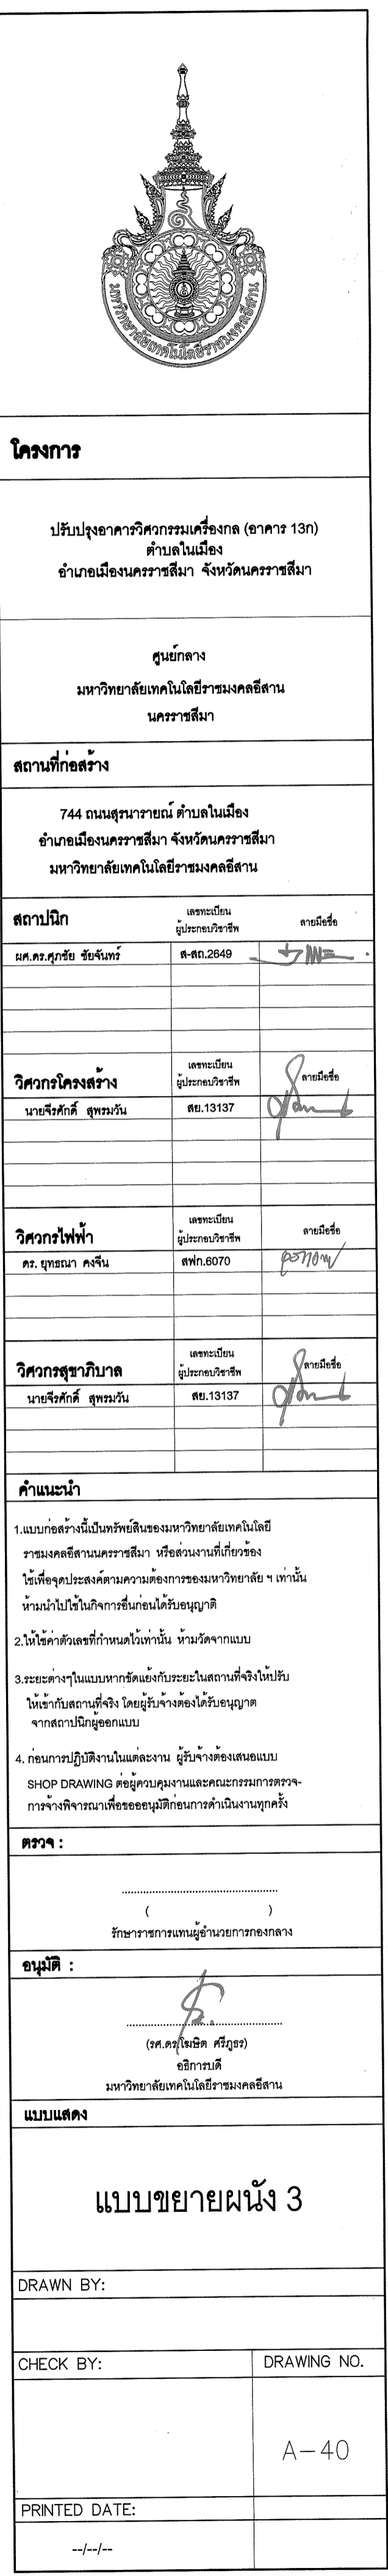 มหาวิทยาลัยเทคโนโลยีราชมงคลอีสาน
โครงการ
ปรับปรุงอาคารวิศวกรรมเครื่องกล (อาคาร 13ก)
ตำบลในเมือง
อำเภอเมืองนครราชสีมา จังหวัดนครราชสีมา
ศูนย์กลาง
มหาวิทยาลัยเทคโนโลยีราชมงคลอีสาน
นครราชสีมา
สถานที่ก่อสร้าง
744 ถนนสุรนารายณ์ ตำบลในเมือง
อำเภอเมืองนครราชสีมา จังหวัดนครราชสีมา
มหาวิทยาลัยเทคโนโลยีราชมงคลอีสาน
สถาปนิก เลขทะเบียน ผู้ประกอบวิชาชีพ ลายมือชื่อ
ผศ.ดร.ศุภชัย ชัยจันทร์ ส-สถ.2649
วิศวกรโครงสร้าง เลขทะเบียน ผู้ประกอบวิชาชีพ ลายมือชื่อ
นายจีรศักดิ์ สุพรมวัน สย.13137
วิศวกรไฟฟ้า เลขทะเบียน ผู้ประกอบวิชาชีพ ลายมือชื่อ
ดร. ยุทธณา คงจีน สฟก.6070
วิศวกรสุขาภิบาล เลขทะเบียน ผู้ประกอบวิชาชีพ ลายมือชื่อ
นายจีรศักดิ์ สุพรมวัน สย.13137
คำแนะนำ
1.แบบก่อสร้างนี้เป็นทรัพย์สินของมหาวิทยาลัยเทคโนโลยี
ราชมงคลอีสานนครราชสีมา หรือส่วนงานที่เกี่ยวข้อง
ใช้เพื่อจุดประสงค์ตามความต้องการของมหาวิทยาลัย ฯ เท่านั้น
ห้ามนำไปใช้ในกิจการอื่นก่อนได้รับอนุญาติ
2.ให้ใช้ค่าตัวเลขที่กำหนดไว้เท่านั้น ห้ามวัดจากแบบ
3.ระยะต่างๆในแบบหากขัดแย้งกับระยะในสถานที่จริงให้ปรับ
ให้เข้ากับสถานที่จริง โดยผู้รับจ้างต้องได้รับอนุญาต
จากสถาปนิกผู้ออกแบบ
4. ก่อนการปฏิบัติงานในแต่ละงาน ผู้รับจ้างต้องเสนอแบบ
SHOP DRAWING ต่อผู้ควบคุมงานและคณะกรรมการตรวจ-
การจ้างพิจารณาเพื่อขออนุมัติก่อนการดำเนินงานทุกครั้ง
ตรวจ :
( )
รักษาราชการแทนผู้อำนวยการกองกลาง
อนุมัติ :
(รศ.ดร.โฆษิต ศรีภูธร)
อธิการบดี
มหาวิทยาลัยเทคโนโลยีราชมงคลอีสาน
แบบแสดง
แบบขยายผนัง 3
DRAWN BY:
CHECK BY: DRAWING NO.
A-40
PRINTED DATE:
--/--/--